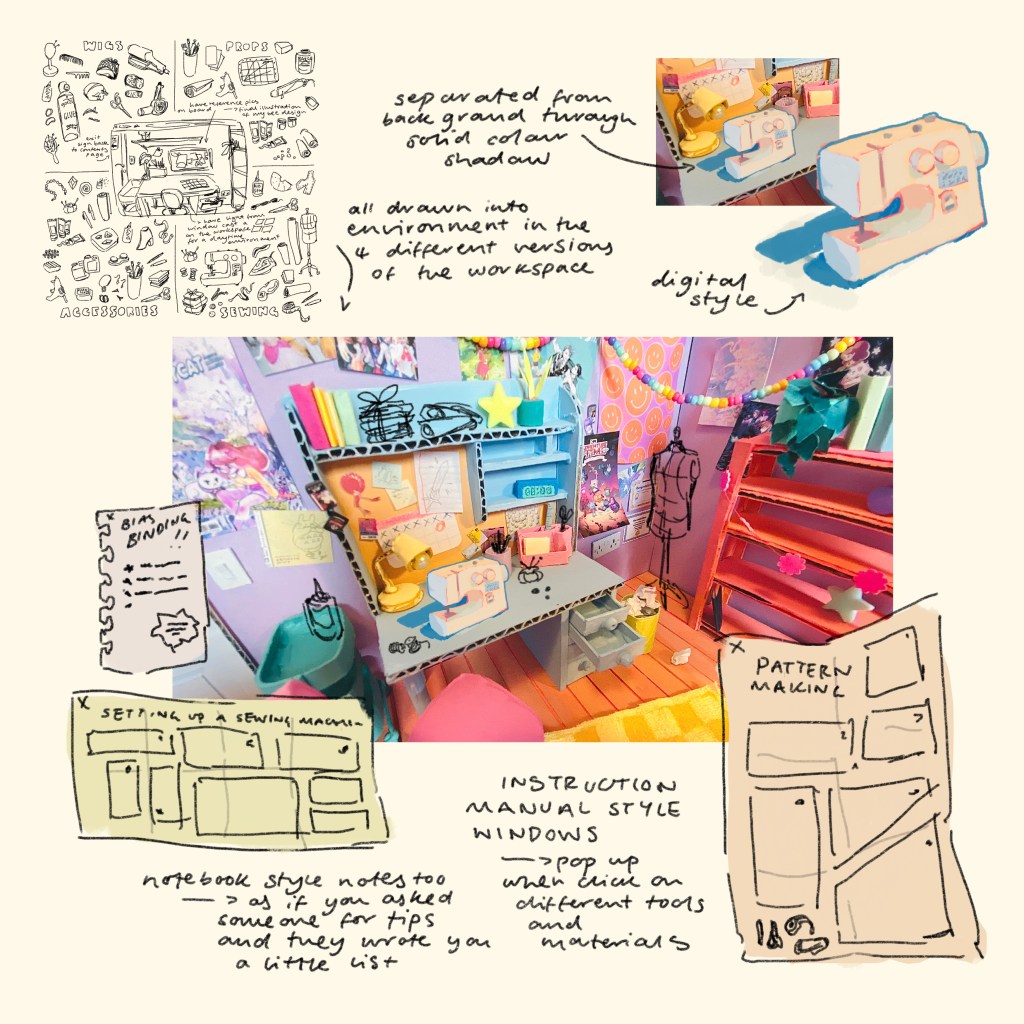 WIGS
PROPS
have reference pics
on board → final illustration
of my bee design
GLUE
exit
sign back
to contents
page
↳ have light from
window cast a
on the workspace
for a daytime
environment
ACCESSORIES
SEWING
separated from
back grand through
solid colour
shadow
all drawn into
environment in the
4 different versions
of the workspace
digital
style
CAT
ADVENTURE
TIME
BIAS
BINDING !!
SETTING UP A SEWING MACHINE
PATTERN
MAKING
INSTRUCTION
MANUAL STYLE
WINDOWS
→ pop up
when click on
different tools
and
materials
notebook style notes too
→ as if you asked
someone for tips
and they wrote you
a little list